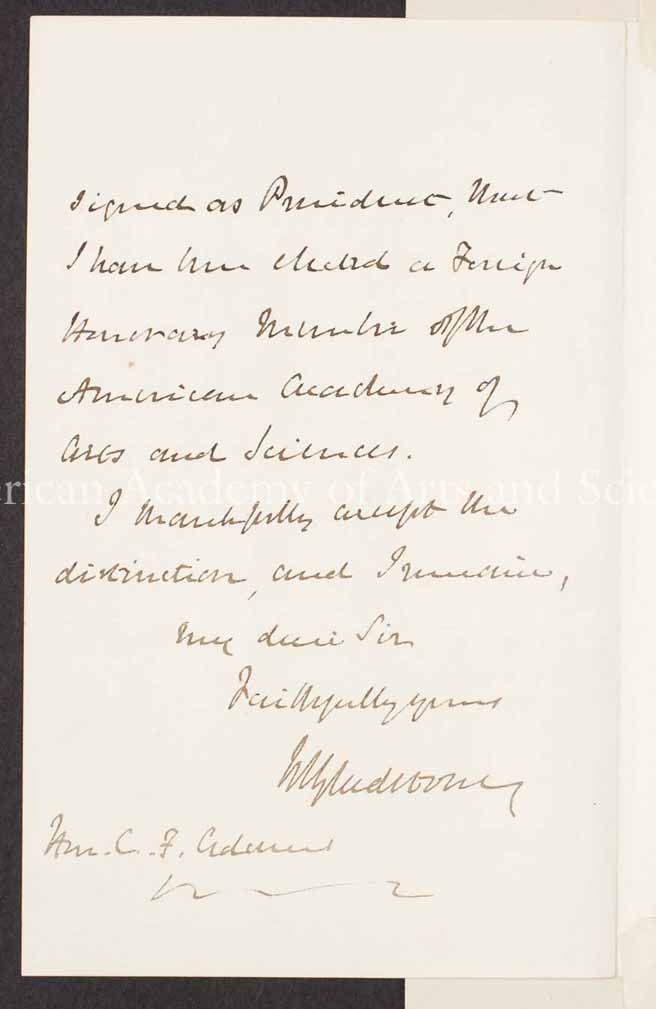 signed as President, that
I have been elected a Foreign
Honorary Member of the
American Academy of
Arts and Sciences.
I thankfully accept the
distinction, and I remain,
my dear Sir
Faithfully yours
WEGladstone
Hon. C. F. Adams
American Academy of Arts and Scie